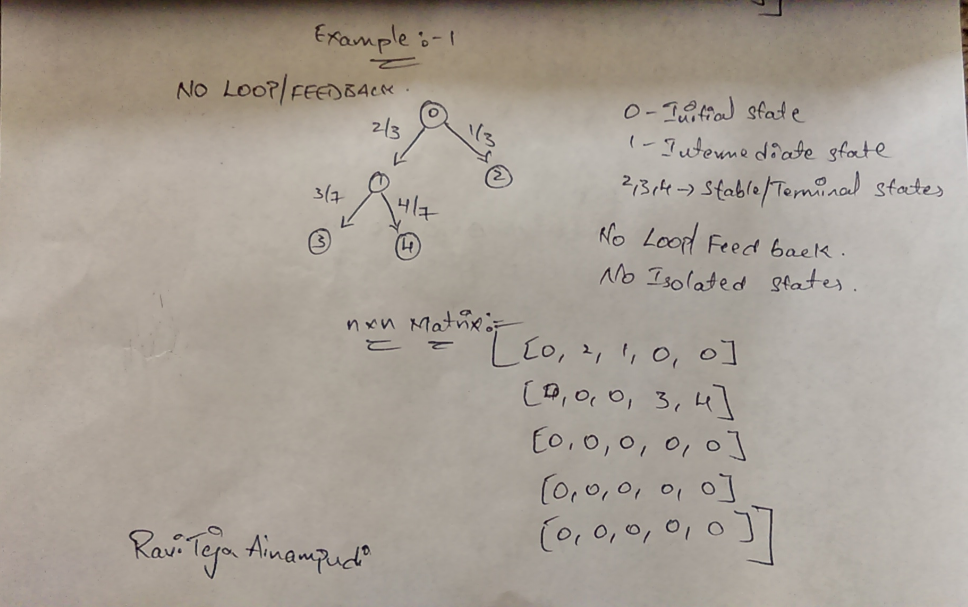 Example :- 1
NO LOOP/FEEDBACK.
0
2/3
1/3
1
2
3/7
4/7
3
4
0 - Initial state
1 - Intermediate state
2,3,4 → Stable/Terminal states
No Loop/Feed back.
No Isolated states.
nxn Matrix:-
[[0, 2, 1, 0, 0]
[0, 0, 0, 3, 4]
[0, 0, 0, 0, 0]
[0, 0, 0, 0, 0]
[0, 0, 0, 0, 0]]
Ravi Teja Ainampudi